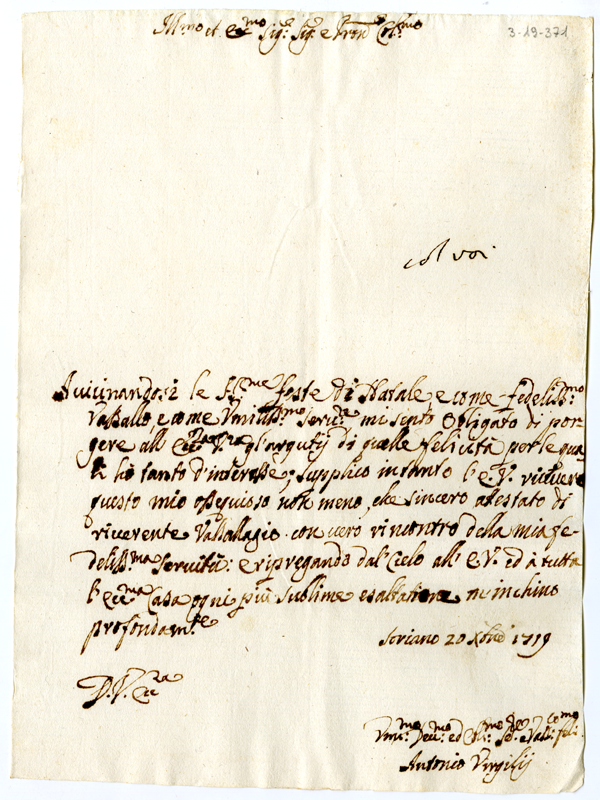 Ill:mo et ecc:mo Sig:e Sig:e e Pron Col:mo
3-19-371
col voi
Avicinandosi le SS:me feste di Natale e come fedeliss:mo
Vassallo, e come Umiliss:mo Serv:re mi sento obligato di por=
gere all' ecc:za V:ra gl'augurij di quelle felicità per le qua
li hò tanto d'interesse; supplico intanto l'e.V. ricevere
questo mio ossequioso non meno, che sincero atestato di
riverente Vassallagio con vero rincontro della mia fe=
deliss:ma Servitù: e ripregando dal Cielo all' e.V. ed à tutta
l'ecc:ma Casa ogni più sublime esaltatione m'inchino
profondam:te
Soriano 20 Xbre 1719
D.V. ecc:za
Umi:mo Dev:mo ed Obl:mo Se:re e Vass: fed:
Antonio Virgilij